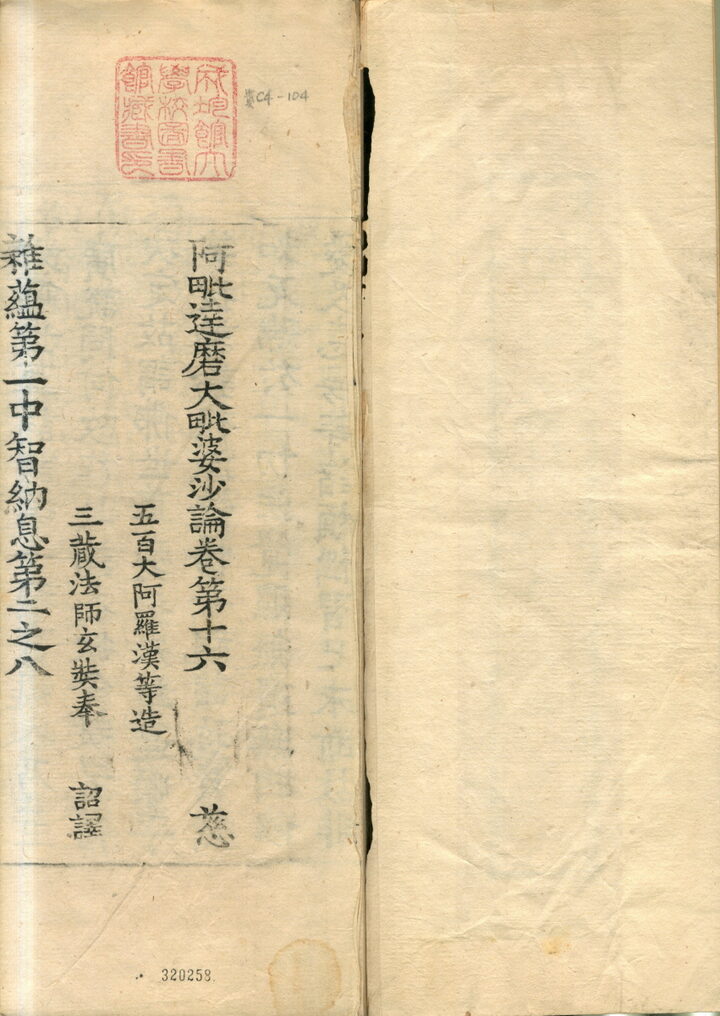 成均館大
學校圖書
館藏書印
C4-104
阿毗達磨大毗婆沙論卷第十六　慈
五百大阿羅漢等造
三藏法師玄奘奉　詔譯
雜蘊第一中智納息第二之八
320258